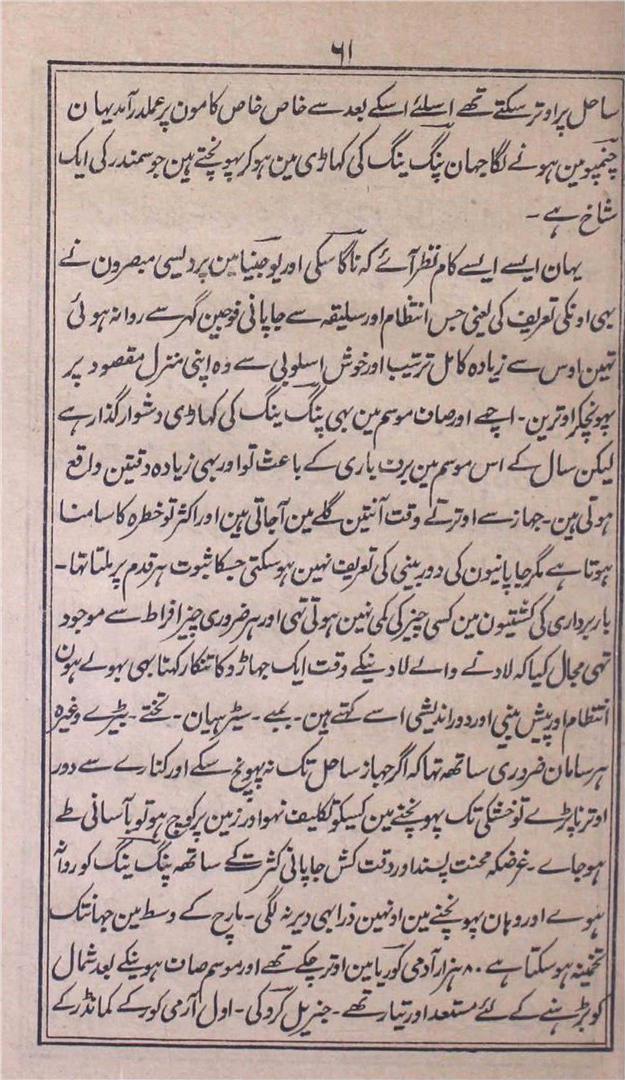 ۶۱
ساحل پر اوتر سکتے تھے اسلئے اسکے بعد سے خاص خاص کامون پر عملدرآمد یہان
چنمپو مین ہونے لگا جہان پنگ ینگ کی کہاڑی مین ہوکر پہونچتے ہین جو سمندر کی ایک
شاخ ہے ۔
یہان ایسے ایسے کام نظر آئے کہ ناگاسکی اور یوجینا مین پردیسی مبصرون نے
یہی اونکی تعریف کی یعنی جس انتظام اور سلیقہ سے جاپانی فوجین گہر سے روانہ ہوئی
تہین اوس سے زیادہ کامل ترتیب اور خوش اسلوبی سے وہ اپنی منزل مقصود پر
پہونچکر اوترین ۔ اچھے اور صاف موسم مین بہی پنگ ینگ کی کہاڑی دشوار گذار ہے
لیکن سال کے اس موسم مین برف باری کے باعث تو اور بہی زیادہ دقتین واقع
ہوتی ہین ۔ جہاز سے اوترتے وقت آنتین گلے مین آجاتی ہین اور اکثر تو خطرہ کا سامنا
ہوتا ہے مگر جاپانیون کی دوربینی کی تعریف نہین ہوسکتی جسکا ثبوت ہر قدم پر ملتا تہا ۔
باربرداری کی کشتیون مین کسی چیز کی کمی نہین ہوتی تہی اور ہر ضروری چیز افراط سے موجود
تہی مجال کیا کہ لادنے والے لادنیکے وقت ایک جہاڑو کا تنکا رکہنا بہی بہولے ہون
انتظام اور پیش بینی اور دوراندیشی اسے کہتے ہین ۔ بمبے ۔ سیڑہیان ۔ تختے ۔ بیڑے وغیرہ
ہر سامان ضروری ساتھہ تہا کہ اگر جہاز ساحل تک نہ پہونچ سکے اور کنارے سے دور
اوترنا پڑے تو خشکی تک پہونچنے مین کسیکو تکلیف نہو اور زمین پر کوچ ہو تو بآسانی طے
ہوجاے ۔ غرضکہ محنت پسند اور دقت کش جاپانی کثرت کے ساتھہ پنگ ینگ کو روانہ
ہوے اور وہان پہونچنے مین اونہین ذرا بہی دیر نہ لگی ۔ مارچ کے وسط مین جہانتک
تخمینہ ہوسکتا ہے ۸۰ ہزار آدمی کوریا مین اوتر چکے تھے اور موسم صاف ہونیکے بعد شمال
کو بڑہنے کے لئے مستعد اور تیار تھے ۔ جنریل کروکی ۔ اول آرمی کور کے کمانڈر کے